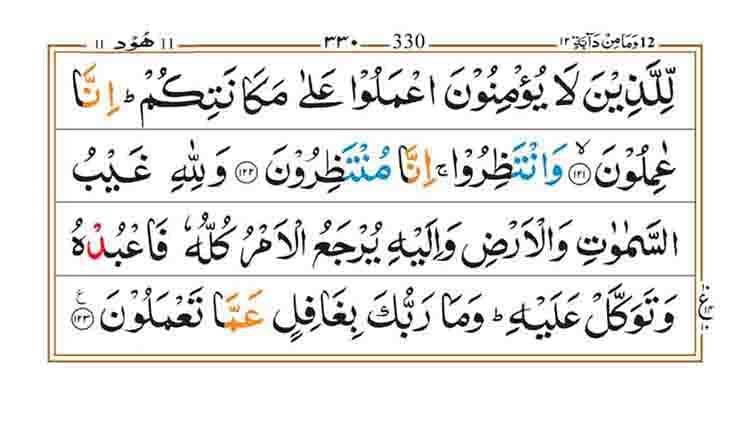 12 وَمَا مِنْ دَآبَّةٍ ١٢ 330 ٣٣٠ 11 هُوْد ١١
لِّلَّذِيْنَ لَا يُؤْمِنُوْنَ اعْمَلُوْا عَلٰى مَكَانَتِكُمْ ؕ اِنَّا
عٰمِلُوْنَ ۙ﴿۱۲۱﴾ وَانْتَظِرُوْا ۚ اِنَّا مُنْتَظِرُوْنَ ﴿۱۲۲﴾ وَلِلّٰهِ غَيْبُ
السَّمٰوٰتِ وَالْاَرْضِ وَاِلَيْهِ يُرْجَعُ الْاَمْرُ كُلُّهٗ فَاعْبُدْهُ
وَتَوَكَّلْ عَلَيْهِ ؕ وَمَا رَبُّكَ بِغَافِلٍ عَمَّا تَعْمَلُوْنَ ﴿۱۲۳﴾ ع